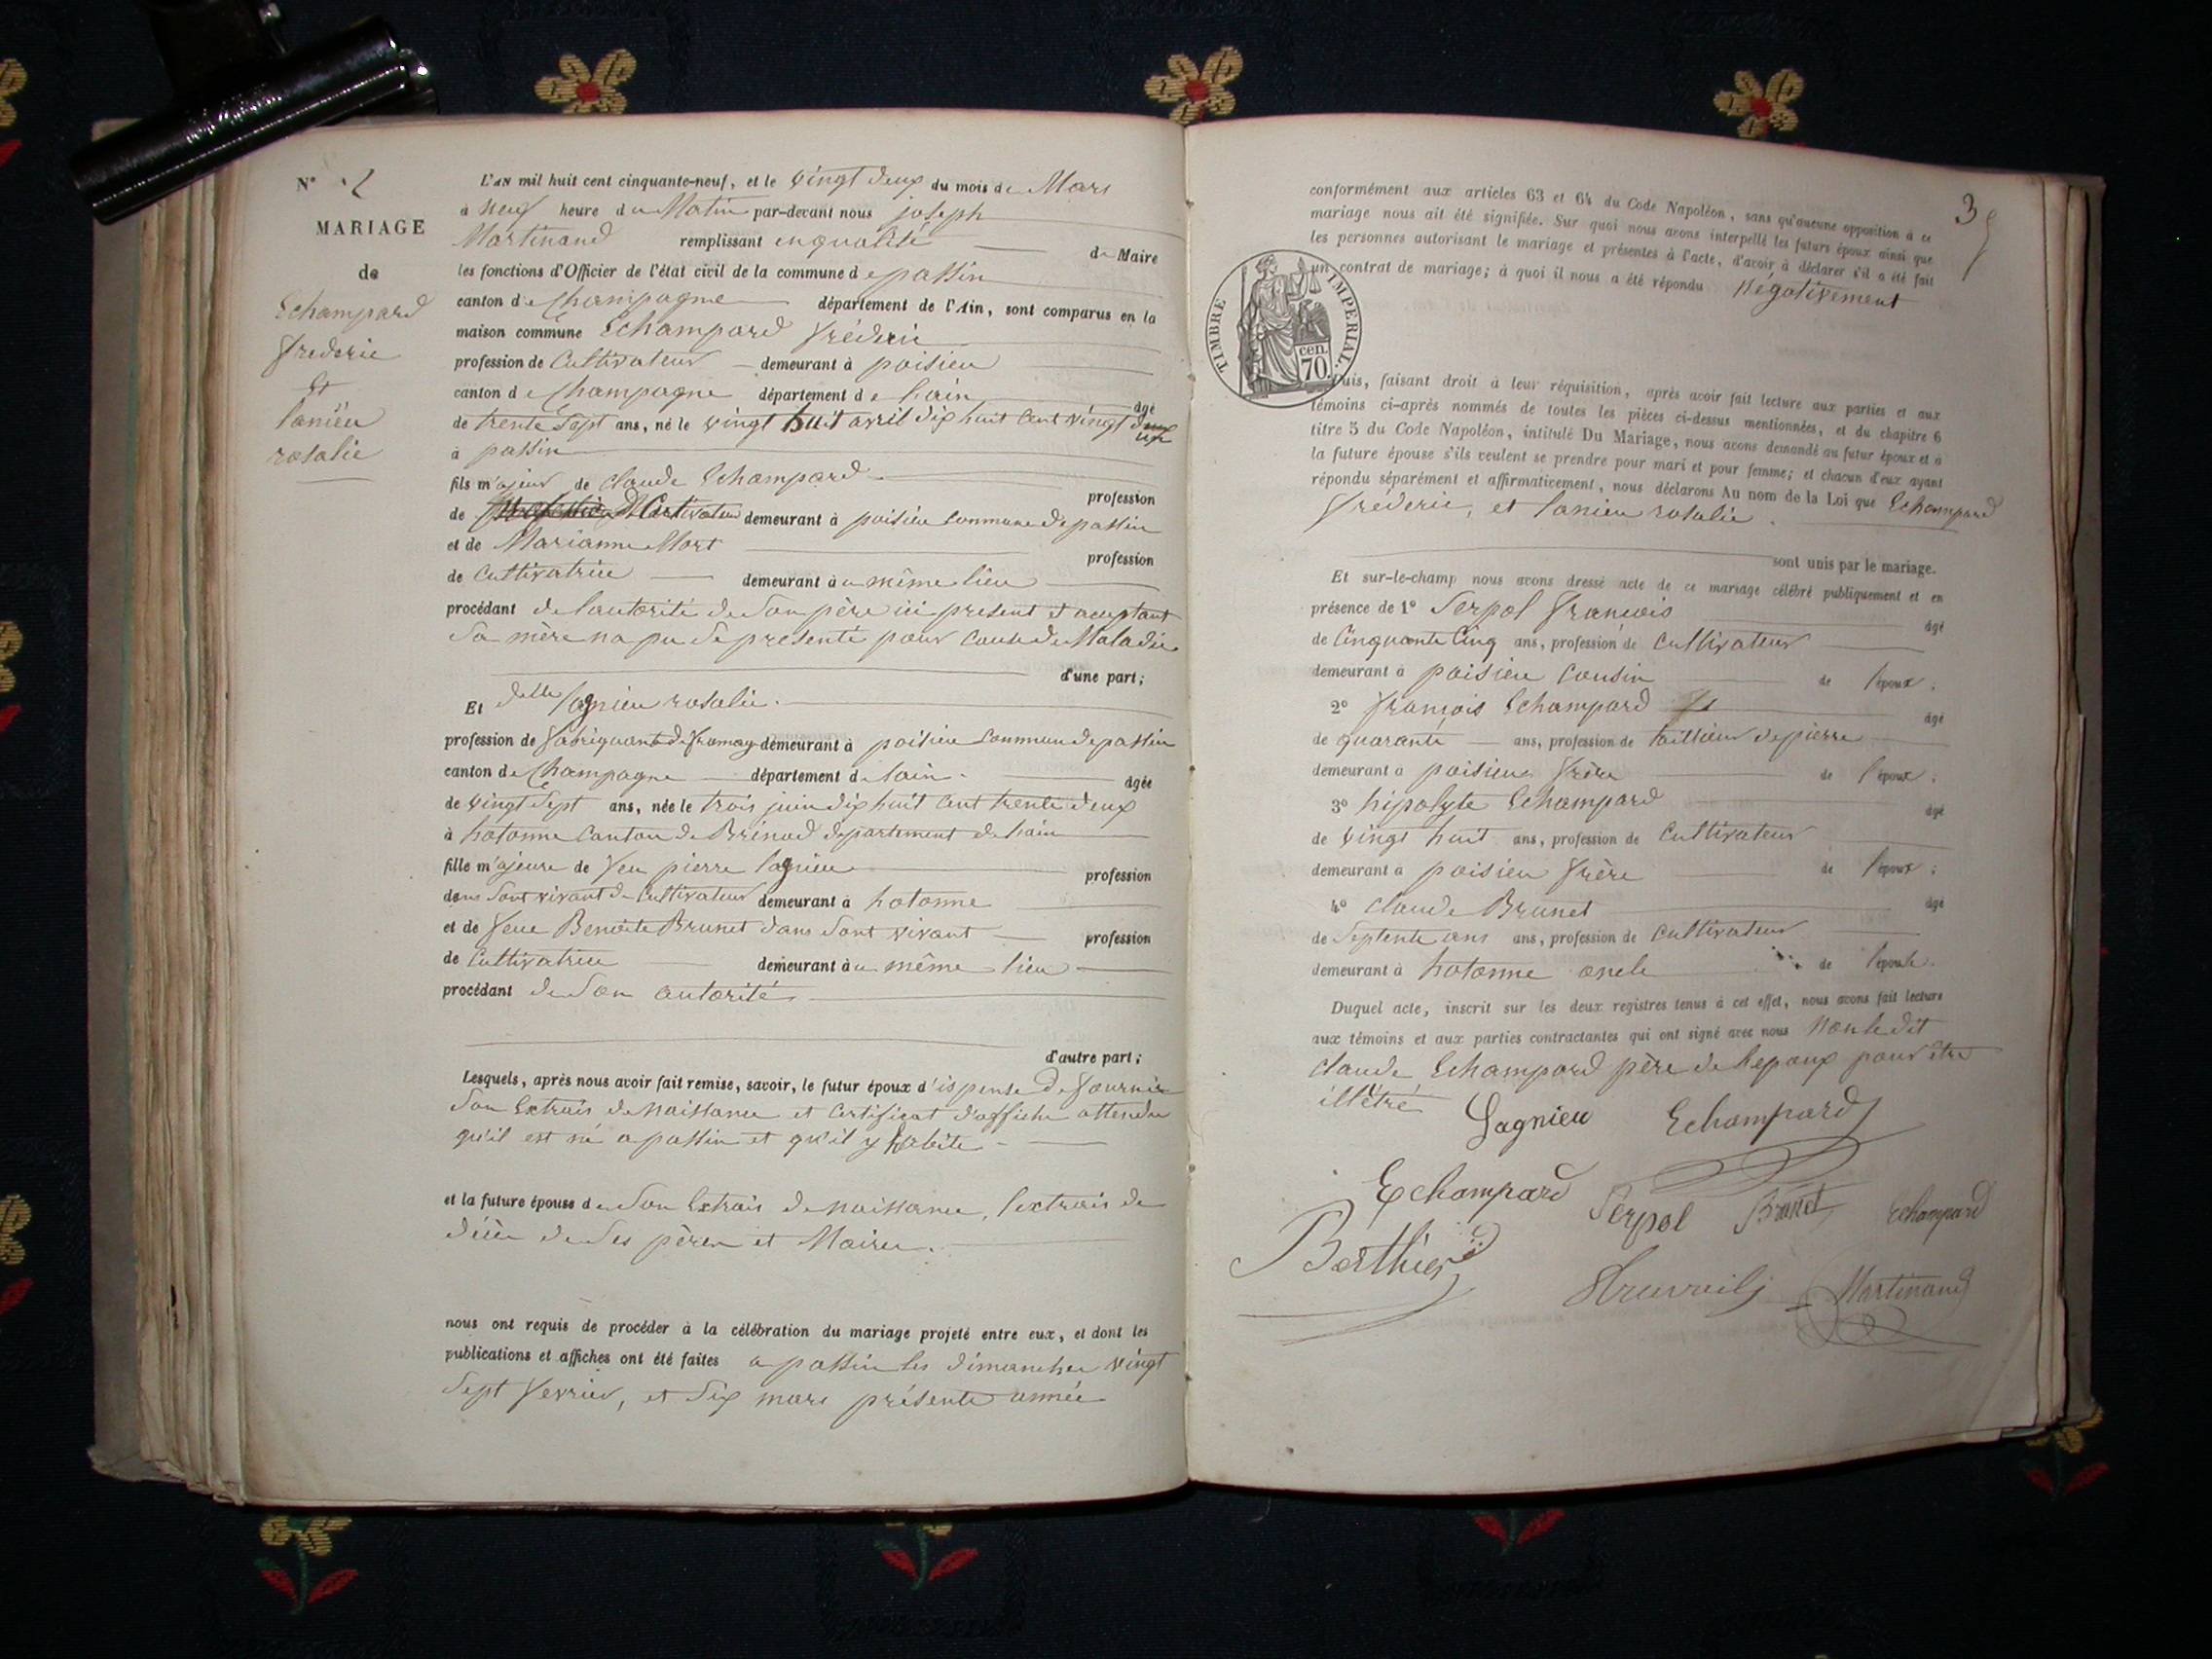 N° 2
MARIAGE
de
Echampard
frederic
Et
lanieu
rosalie
L'AN mil huit cent cinquante-neuf, et le vingt deux du mois de Mars
à neuf heure du Matin par-devant nous joseph
Martinand remplissant en qualité de Maire
les fonctions d'Officier de l'état civil de la commune de passin
canton de Champagne département de l'Ain, sont comparus en la
maison commune Echampard fréderic
profession de Cultivateur demeurant à poisieu
canton de Champagne département de l'ain âgé
de trente Sept ans, né le vingt huit avril dix huit Cent vingt
à passin
fils majeur de Claude Echampard profession
de Cultivateur demeurant à poisieu Commune de passin
et de Marianne Mort profession
de Cultivatrice demeurant au même lieu
procédant de l'autorité de Son père ici present et aceptant
Sa mère na pu Se presenté pour Cause de Maladie
d'une part;
Et delle lagnieu rosalie
profession de fabriquante de fromag demeurant à poisieu Commune de passin
canton de Champagne département de lain âgée
de vingt Sept ans, née le trois juin dix huit Cent trente deux
à hotonne Canton de Brénod département de lain
fille majeure de feu pierre lagnieu profession
dans Sont vivant de Cultivateur demeurant à hotonne
et de feue Benoite Brunet dans Sont vivant profession
de Cultivatrice demeurant au même lieu
procédant de Son autorité
d'autre part;
Lesquels, après nous avoir fait remise, savoir, le futur époux dispense de fournir
Son Extrais de Naissance et Certificat d'affiche attendu
qu'il est né a passin et qu'il y habite
et la future épouse de Son Extrais de naissance, lextrais de
décès de Ses pères et Maires.
nous ont requis de procéder à la célébration du mariage projeté entre eux, et dont les
publications et affiches ont été faites a passin les dimanches vingt
Sept fevrier, et Six mars présente année
3
conformément aux articles 63 et 64 du Code Napoléon, sans qu'aucune opposition à ce
mariage nous ait été signifiée. Sur quoi nous avons interpellé les futurs époux ainsi que
les personnes autorisant le mariage et présentes à l'acte, d'avoir à déclarer s'il a été fait
un contrat de mariage; à quoi il nous a été répondu Négativement
TIMBRE IMPÉRIAL.
cen. 70.
Puis, faisant droit à leur réquisition, après avoir fait lecture aux parties et aux
témoins ci-après nommés de toutes les pièces ci-dessus mentionnées, et du chapitre 6
titre 5 du Code Napoléon, intitulé Du Mariage, nous avons demandé au futur époux et à
la future épouse s'ils veulent se prendre pour mari et pour femme; et chacun d'eux ayant
répondu séparément et affirmativement, nous déclarons Au nom de la Loi que Echampard
fréderic, et lanieu rosalie.
sont unis par le mariage.
Et sur-le-champ nous avons dressé acte de ce mariage célébré publiquement et en
présence de 1° Serpol françois âgé
de Cinquante Cinq ans, profession de Cultivateur
demeurant à poisieu Cousin de l'époux;
2° françois Echampard âgé
de quarante ans, profession de taillieur de pierre
demeurant à poisieu frère de l'époux;
3° hipolyte Echampard âgé
de vingt huit ans, profession de Cultivateur
demeurant à poisieu frère de l'époux;
4° Claude Brunet âgé
de Septente ans ans, profession de Cultivateur
demeurant à hotonne oncle de l'épouse.
Duquel acte, inscrit sur les deux registres tenus à cet effet, nous avons fait lecture
aux témoins et aux parties contractantes qui ont signé avec nous Non le dit
Claude Echampard père de lepoux pour être
illétré
Lagnieu Echampard
Echampard Serpol Brunet Echampard
Berthier Martinand